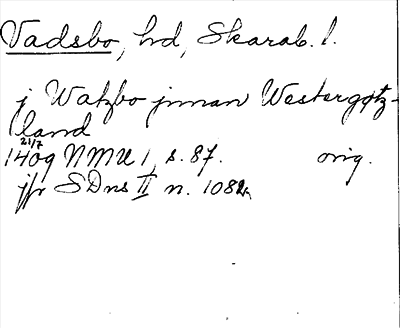 Vadsbo, hd, Skarab. l.
j Watzbo jnnan Westergøtz-
land
21/7
1409 NMU 1, s. 87. orig.
jfr SDns II n. 1082